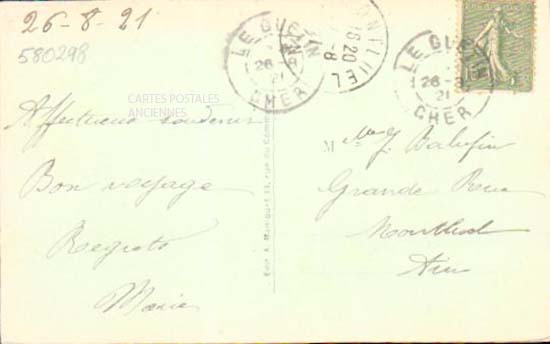 26-8-21
580298
LE GUÉTIN
26-8
21
CHER
16 20
-8
LE GUÉTIN
26-8
21
CHER
CARTES POSTALES
ANCIENNES
Affectueux souvenir
Bon voyage
Regrets
Marie
M
Grande Rue
Montluel
Ain